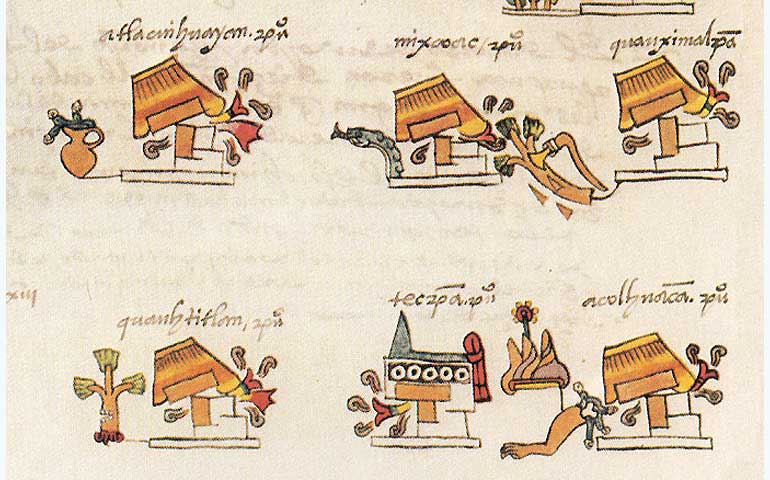 atlacuihuayan. puº
mixcoac, puº
quauximalpã
xiii
quauhtitlan, puº
tecpã. puº
acolhuacã. puº